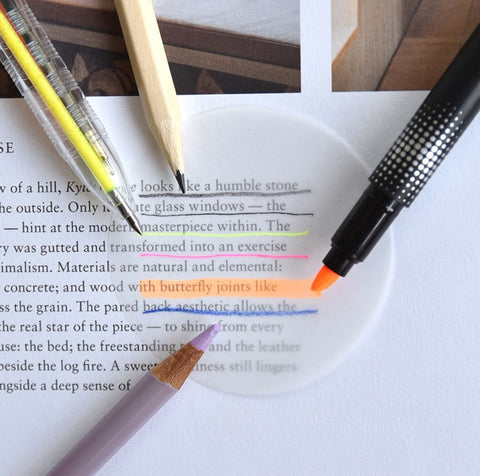 SE
w of a hill, looks like a humble stone
he outside. Only glass windows — the
— hint at the modern masterpiece within. The
ry was gutted and transformed into an exercise
imalism. Materials are natural and elemental:
concrete; and wood with butterfly joints like
ss the grain. The pared back aesthetic allows the
the real star of the piece — to shine from every
use: the bed; the freestanding and the leather
beside the log fire. A still lingers
ngside a deep sense of